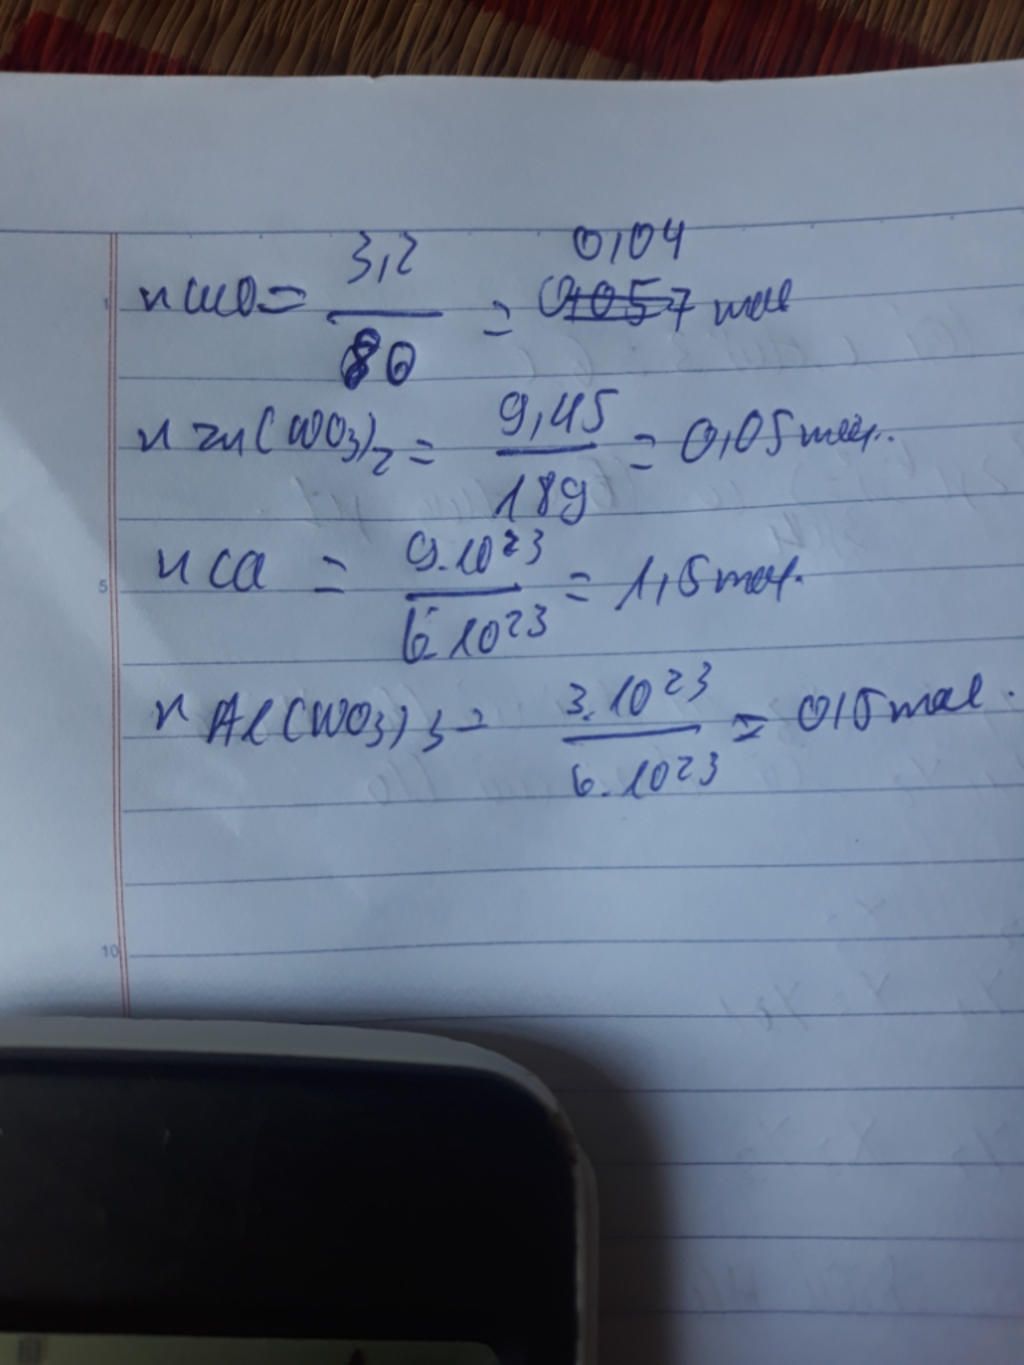 n CuO = 3,2 / 80 = 0,04 mol
n Zn(NO3)2 = 9,45 / 189 = 0,05 mol.
n Ca = 9.10^23 / 6.10^23 = 1,5 mol.
n Al(NO3)3 = 3.10^23 / 6.10^23 = 0,5 mol.
1
5
10